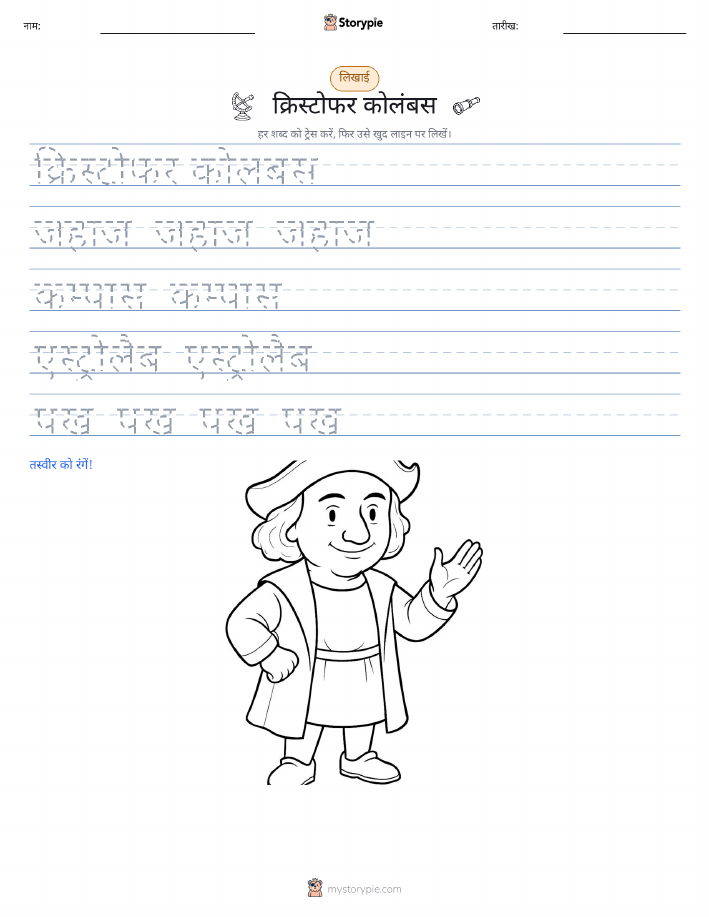 नाम:
Storypie
तारीख:
लिखाई
क्रिस्टोफर कोलंबस
हर शब्द को ट्रेस करें, फिर उसे खुद लाइन पर लिखें।
क्रिस्टोफर कोलंबस
जहाज जहाज जहाज
कम्पास कम्पास
एस्ट्रोलैब एस्ट्रोलैब
पंख पंख पंख पंख
तस्वीर को रंगें!
mystorypie.com